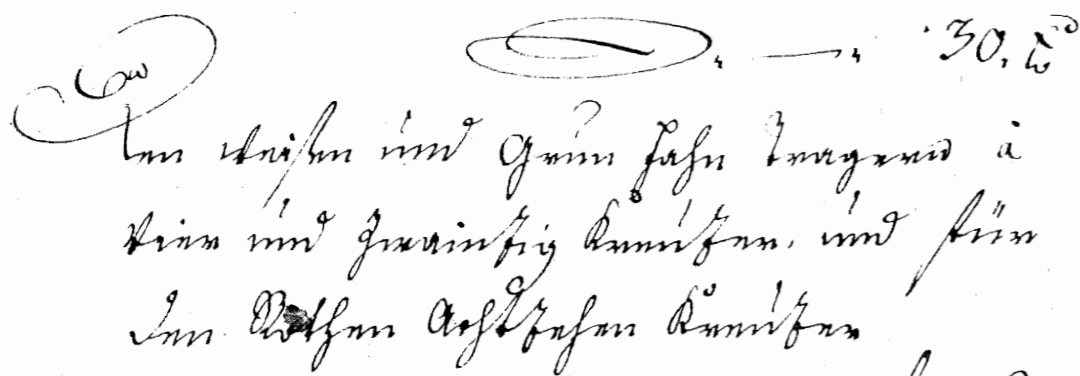 30. xr
den weisen und Grün Fahn Tragern à
Vier und Zwaintzig Kreützer, und für
den Rothen Achtzehen Kreützer